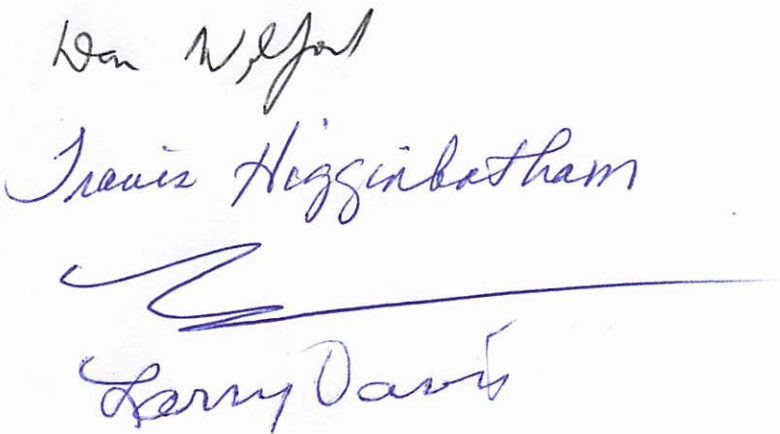 Don Wilford
Travis Higginbotham
Larry Davis